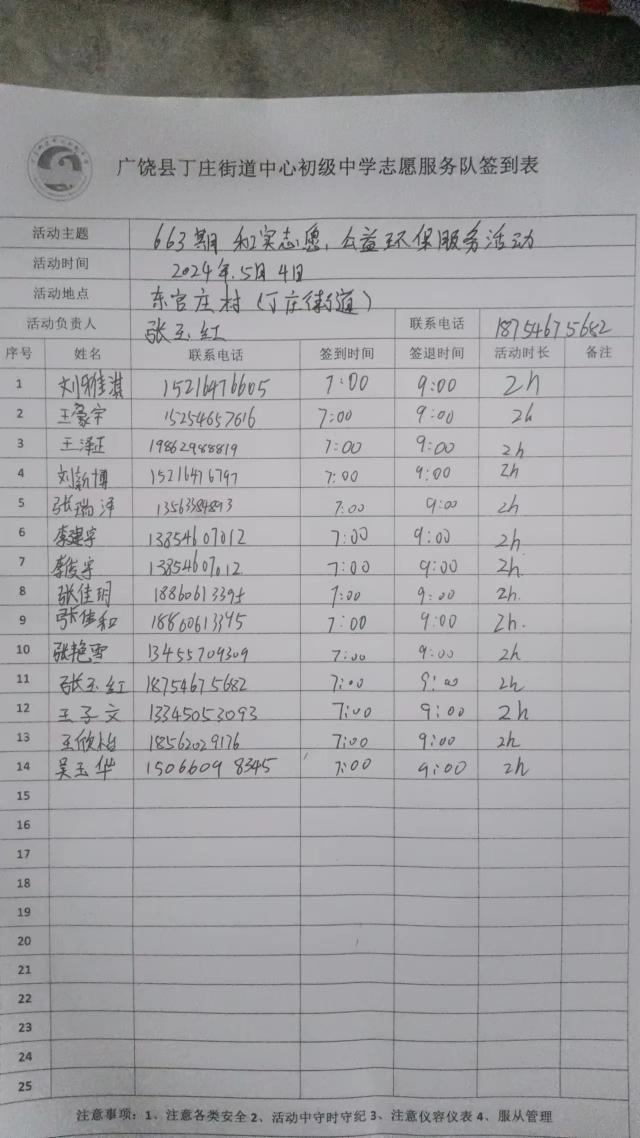 广饶县丁庄街道中心初级中学志愿服务队签到表
活动主题 663期 和实志愿、公益环保服务活动
活动时间 2024年5月4日
活动地点 东官庄村（丁庄街道）
活动负责人 张玉红 联系电话 18754675682
序号 姓名 联系电话 签到时间 签退时间 活动时长 备注
1 刘雅淇 15216476605 7:00 9:00 2h
2 王豪宇 15254657616 7:00 9:00 2h
3 王泽正 19862988819 7:00 9:00 2h
4 刘新博 15216476797 7:00 9:00 2h
5 张瑞泽 13563384893 7:00 9:00 2h
6 李建宇 13854607012 7:00 9:00 2h
7 李俊宇 13854607012 7:00 9:00 2h
8 张佳玥 7:00 9:00 2h.
9 张佳和 18860613395 7:00 9:00 2h.
10 张艳雪 13455709309 7:00 9:00 2h
11 张玉红 18754675682 7:00 9:00 2h
12 王子文 13345053093 7:00 9:00 2h
13 王欣怡 18562029176 7:00 9:00 2h
14 吴玉华 15066098345 7:00 9:00 2h
15
16
17
18
19
20
21
22
23
24
25
注意事项：1、注意各类安全 2、活动中守时守纪 3、注意仪容仪表 4、服从管理